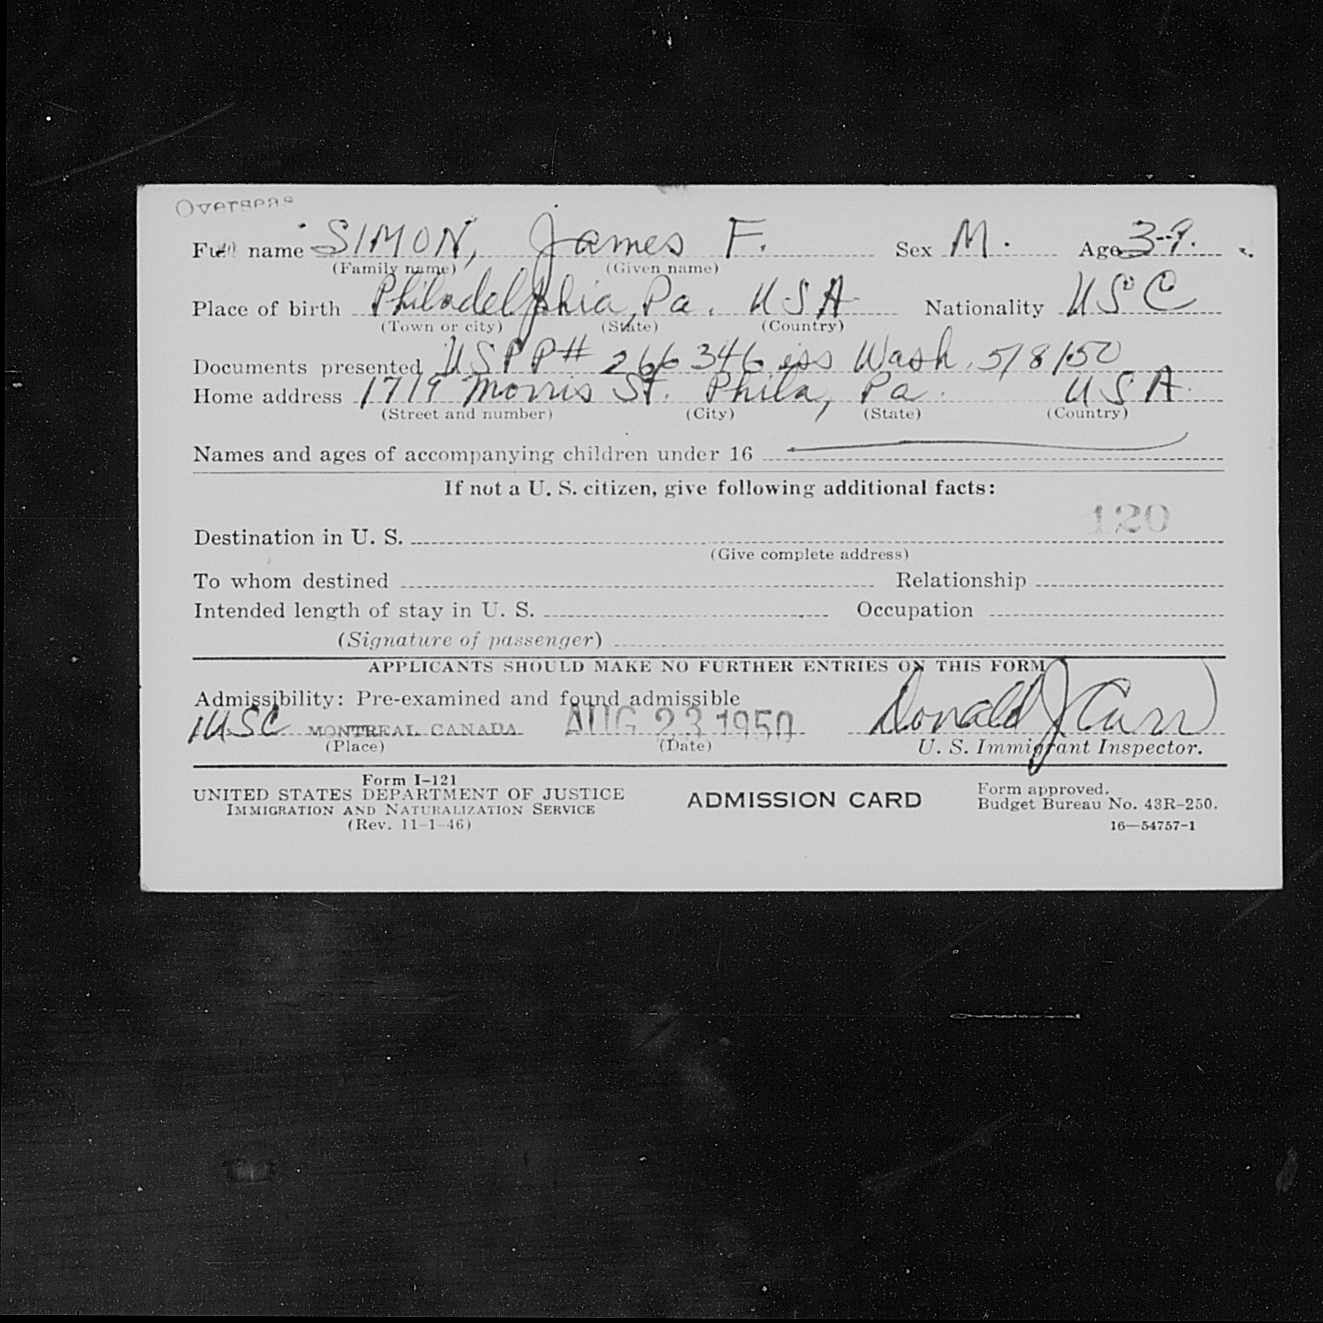 Overseas
Full name SIMON, James F. Sex M. Age 39.
(Family name) (Given name)
Place of birth Philadelphia, Pa. USA Nationality USC
(Town or city) (State) (Country)
Documents presented USPP# 266346 iss Wash. 5/8/50
Home address 1719 Morris St. Phila, Pa. USA
(Street and number) (City) (State) (Country)
Names and ages of accompanying children under 16
If not a U. S. citizen, give following additional facts:
120
Destination in U. S.
(Give complete address)
To whom destined Relationship
Intended length of stay in U. S. Occupation
(Signature of passenger)
APPLICANTS SHOULD MAKE NO FURTHER ENTRIES ON THIS FORM
Admissibility: Pre-examined and found admissible
USC MONTREAL CANADA AUG 23 1950 Donald J Carr
(Place) (Date) U. S. Immigrant Inspector.
Form I-121
UNITED STATES DEPARTMENT OF JUSTICE
IMMIGRATION AND NATURALIZATION SERVICE
(Rev. 11-1-46)
ADMISSION CARD
Form approved.
Budget Bureau No. 43R-250.
16—54757-1